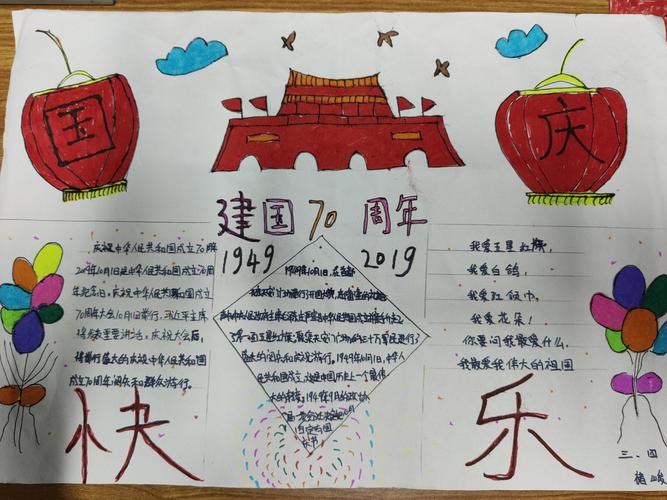 国
庆
建国70周年
1949
2019
庆祝中华人民共和国成立70周
2019年10月1日是中华人民共和国成立70周
年纪念日。庆祝中华人民共和国成立
70周年大会10月1日举行。习近平主席
将发表重要讲话。庆祝大会后,
将举行盛大的庆祝中华人民共和国
成立70周年阅兵和群众游行。
1949年10月1日,在首都
天安门广场举行开国
第一面五星红旗,聚集天安门广场的三十万军民进行了
盛大的阅兵和庆祝游行。1949年10月1日,中华人
民共和国成立,这是中国历史上一个最伟
大的转变。1949年9月的政协
我爱五星红旗,
我爱白鸽,
我爱红领巾,
我爱花朵!
你要问我最爱什么,
我最爱我伟大的祖国
快
乐
三、四